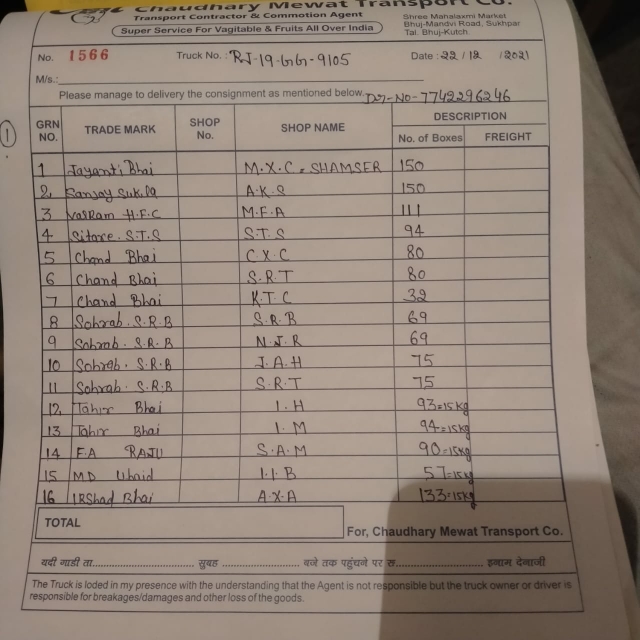 Chaudhary Mewat Transport Co.
Transport Contractor & Commotion Agent
Super Service For Vagitable & Fruits All Over India
Shree Mahalaxmi Market
Bhuj-Mandvi Road, Sukhpar
Tal. Bhuj-Kutch.
No. 1566 Truck No. : RJ-19-GG-9105 Date : 22/12/2021
M/s.:
Please manage to delivery the consignment as mentioned below. Dr-No-7742296246
1
GRN NO. TRADE MARK SHOP No. SHOP NAME DESCRIPTION
No. of Boxes FREIGHT
1 Jayanti Bhai M.X.C = SHAMSER 150
2 Sanjay Sukla A.K.S 150
3 Valram H.F.C M.F.A 111
4 Sitare. S.T.S S.T.S 94
5 Chand Bhai C.X.C 80
6 Chand Bhai S.R.T 80
7 Chand Bhai K.T.C 32
8 Sohrab. S.R.B S.R.B 69
9 Sohrab. S.R.B N.J.R 69
10 Sohrab. S.R.B J.A.H 75
11 Sohrab. S.R.B S.R.T 75
12 Tahir Bhai I.H 93=15kg
13 Tahir Bhai I.M 94=15kg
14 F.A RAJU S.A.M 90=15kg
15 MD Uhaid I.I.B 57=15kg
16 IRShad Bhai A.X.A 133=15kg
TOTAL
For, Chaudhary Mewat Transport Co.
यदी गाडी ता............ सुबह ............ बने तक पहुंचने पर स............ इनाम देनाजी
The Truck is loded in my presence with the understanding that the Agent is not responsible but the truck owner or driver is
responsible for breakages/damages and other loss of the goods.